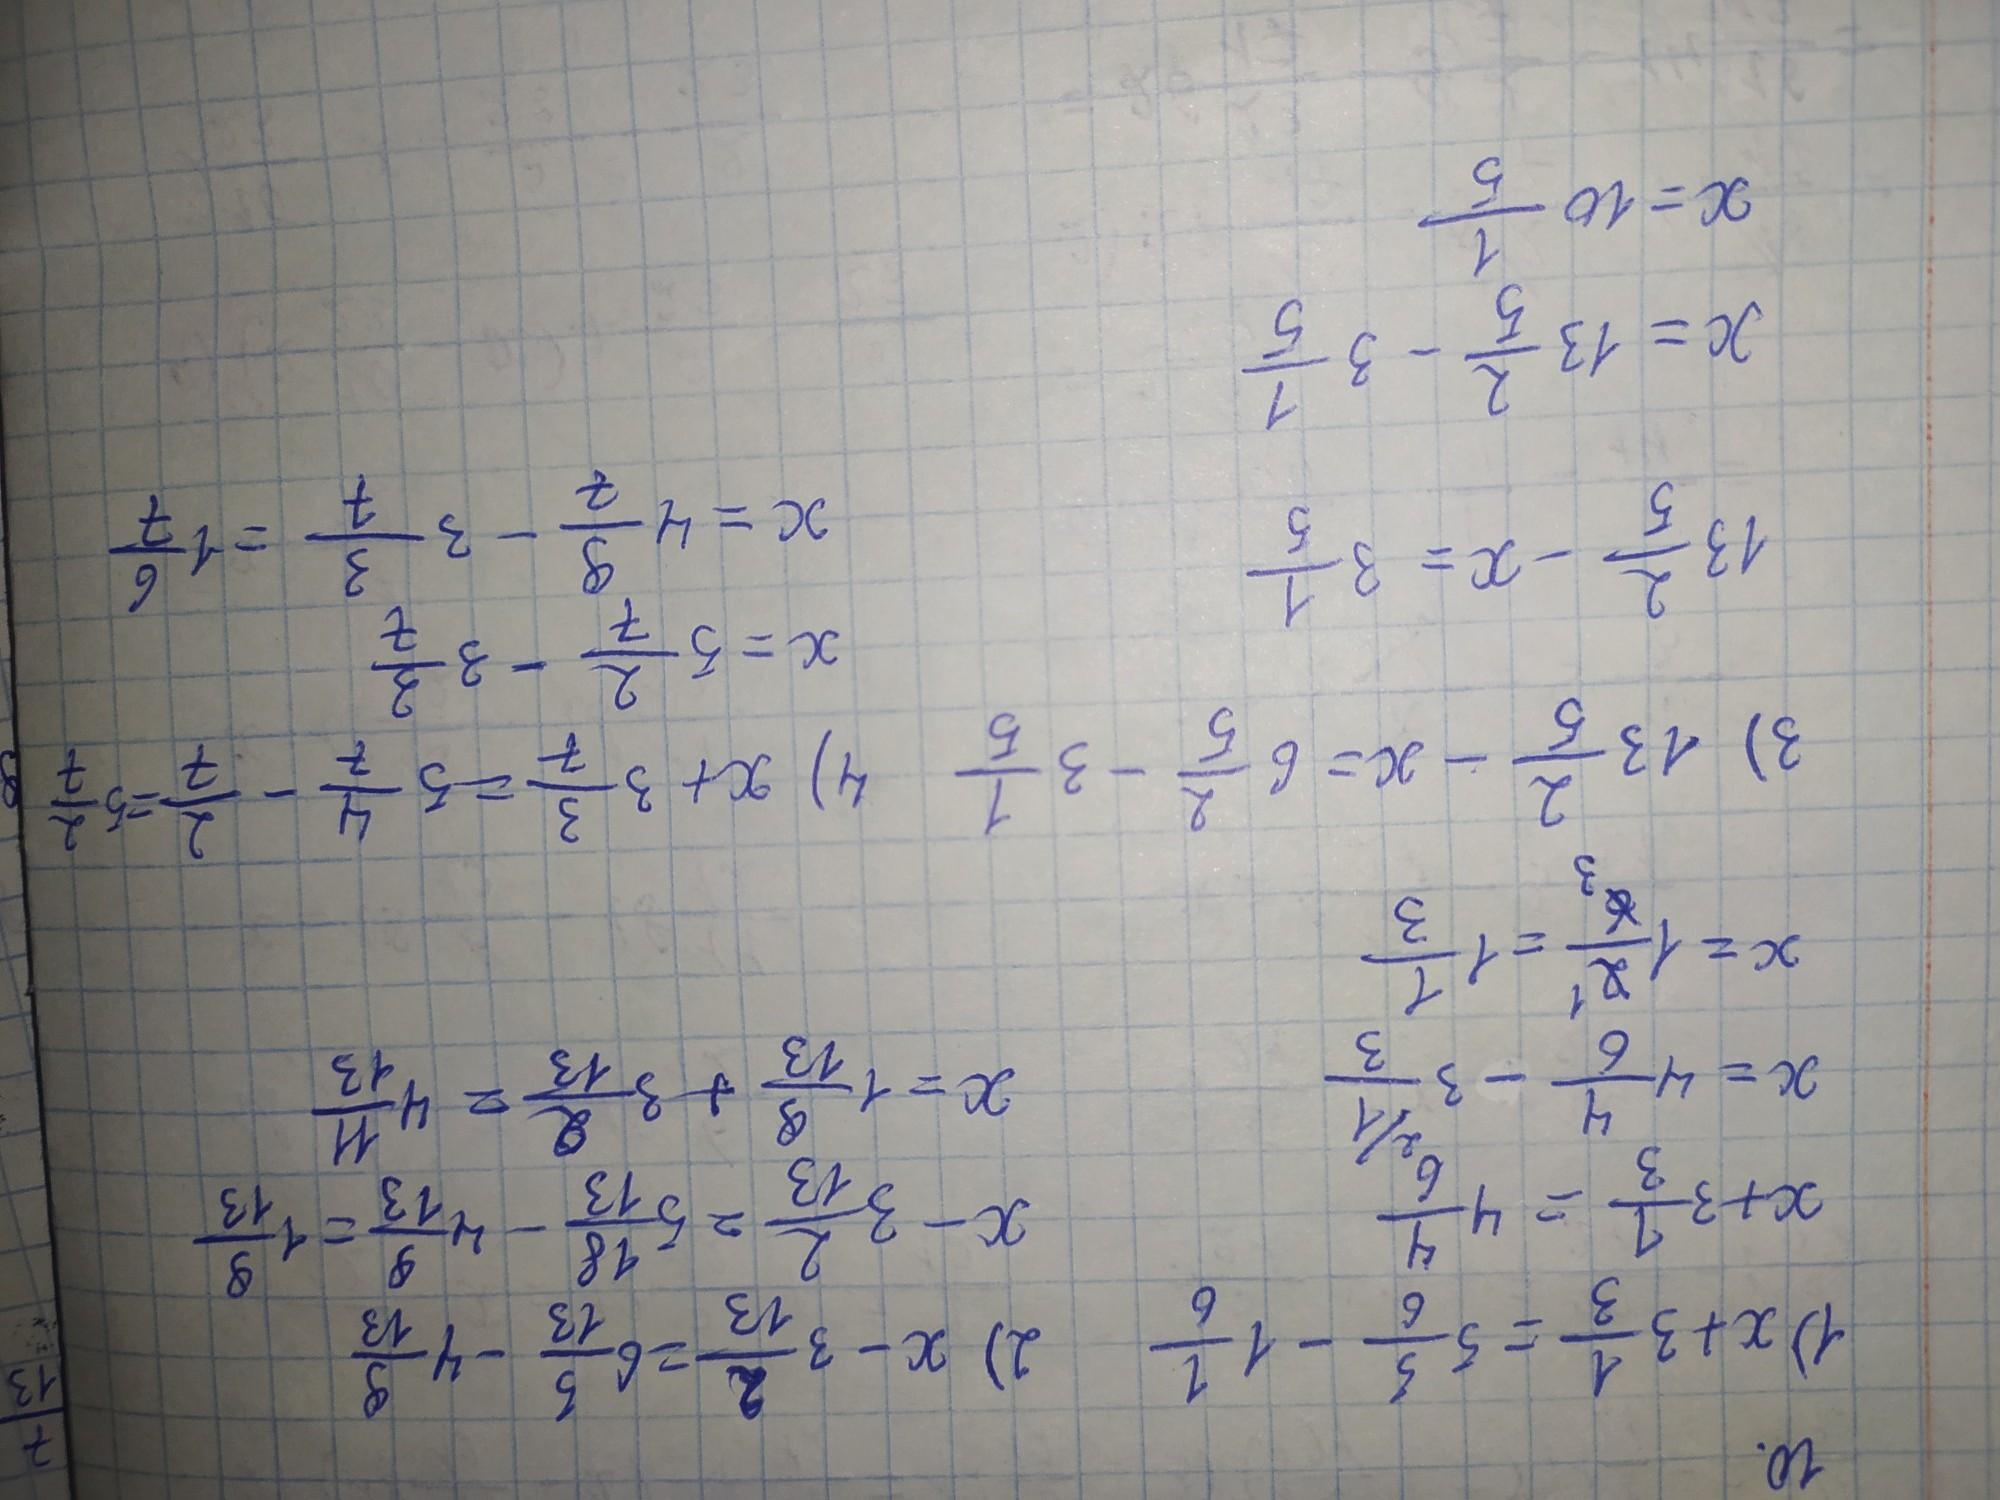 10.
1) x+3 1/3 = 5 5/6 - 1 1/6
x+3 1/3 = 4 4/6
x = 4 4/6 - 3 2/1/3
x = 1 2/6 = 1 1/3
2) x - 3 2/13 = 6 5/13 - 4 9/13
x - 3 2/13 = 5 18/13 - 4 9/13 = 1 9/13
x = 1 9/13 + 3 2/13 = 4 11/13
3) 13 2/5 - x = 6 2/5 - 3 1/5
13 2/5 - x = 3 1/5
x = 13 2/5 - 3 1/5
x = 10 1/5
4) x+3 3/7 = 5 4/7 - 2/7 = 5 2/7
x = 5 2/7 - 3 3/7
x = 4 9/7 - 3 3/7 = 1 6/7
7/13